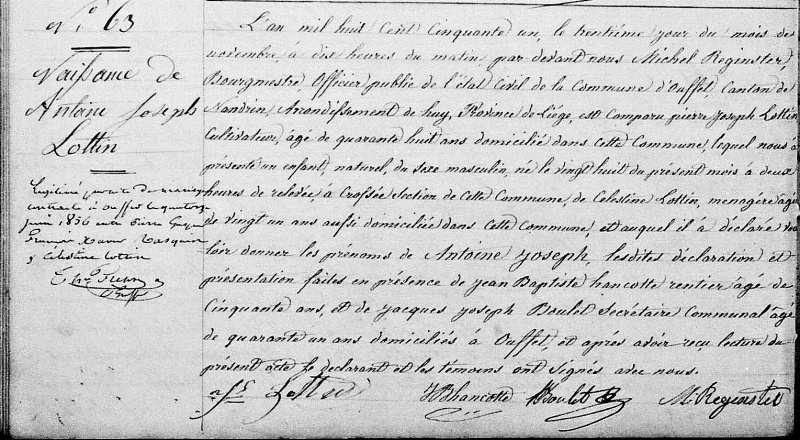 N.º 63
Naissance de
Antoine Joseph
Lottin
Légitimé par de mariage
contracté à Ouffet le quatorze
juin 1856 entre Pierre
François Xavier
& Célestine Lottin
L'an mil huit Cent Cinquante un, le trentième jour du mois de
novembre, à dix heures du matin, par devant nous Michel Reginster,
Bourgmestre, Officier public de l'état Civil de la Commune d'Ouffet, Canton de
Nandrin, Arrondissement de huy, Province de Liège, est Comparu pierre Joseph Lottin
Cultivateur, âgé de quarante huit ans domicilié dans cette Commune, lequel nous à
présenté un enfant, naturel, du sexe masculin, né le vingt huit du présent mois à deux
heures de relevée, à Crossée Section de Cette Commune, de Célestine Lottin, menagère âgée
de vingt un ans aussi domiciliée dans cette Commune, et auquel il à déclaré vou
loir donner les prénoms de Antoine Joseph, lesdites déclaration et
présentation faites en présence de jean Baptiste hancotte rentier âgé de
Cinquante ans, et de jacques joseph Boulet Secrétaire Communal âgé
de quarante un ans domiciliés à Ouffet et après avoir reçu lecture du
présent acte le déclarant et les témoins ont signés avec nous.
Lottin JBhancotte Boulet M. Reginster